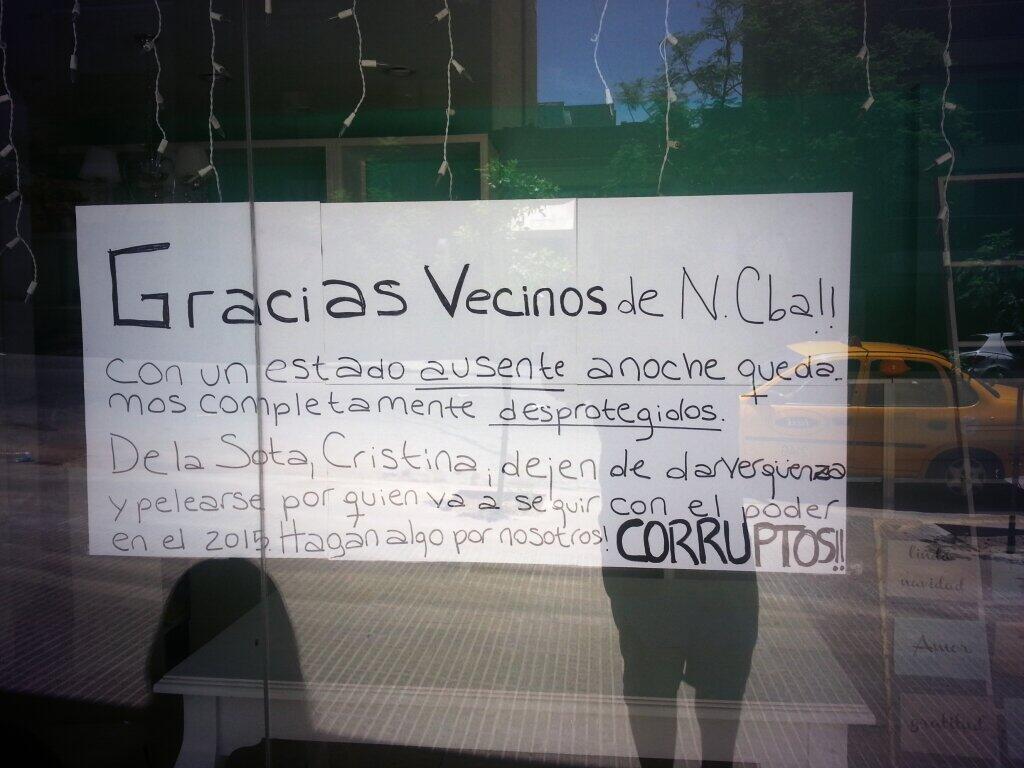 Gracias Vecinos de N. Cba!!
con un estado ausente anoche queda-
mos completamente desprotegidos.
De la Sota, Cristina, dejen de dar vergüenza
y pelearse por quien va a seguir con el poder
en el 2015. Hagan algo por nosotros! CORRUPTOS!!
linda
navidad
Amor
gratitud